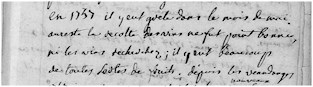 en 1737 il y eut gelée dans le mois de mai.
au reste la recolte des vins ne fut point bonne,
ni les vins recherchez ; il y eut beaucoup
de toutes sortes de fruits. depuis les vendanges